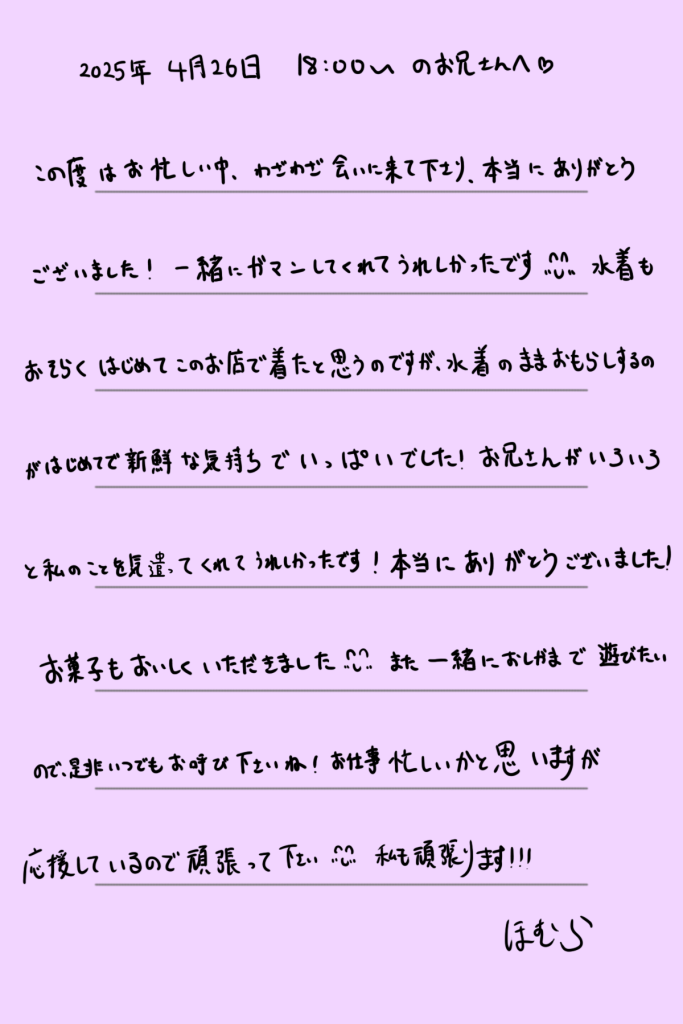 2025年 4月26日 18:00〜 のお兄さんへ♡
この度はお忙しい中、わざわざ会いに来て下さり、本当にありがとう
ございました! 一緒にガマンしてくれてうれしかったです 水着も
おそらくはじめてこのお店で着たと思うのですが、水着のままおもらしするの
がはじめてで新鮮な気持ちでいっぱいでした! お兄さんがいろいろ
と私のことを気遣ってくれてうれしかったです! 本当にありがとうございました!
お菓子もおいしくいただきました また一緒におしがまで遊びたい
ので、是非いつでもお呼び下さいね! お仕事忙しいかと思いますが
応援しているので頑張って下さい 私も頑張ります!!!
ほむら